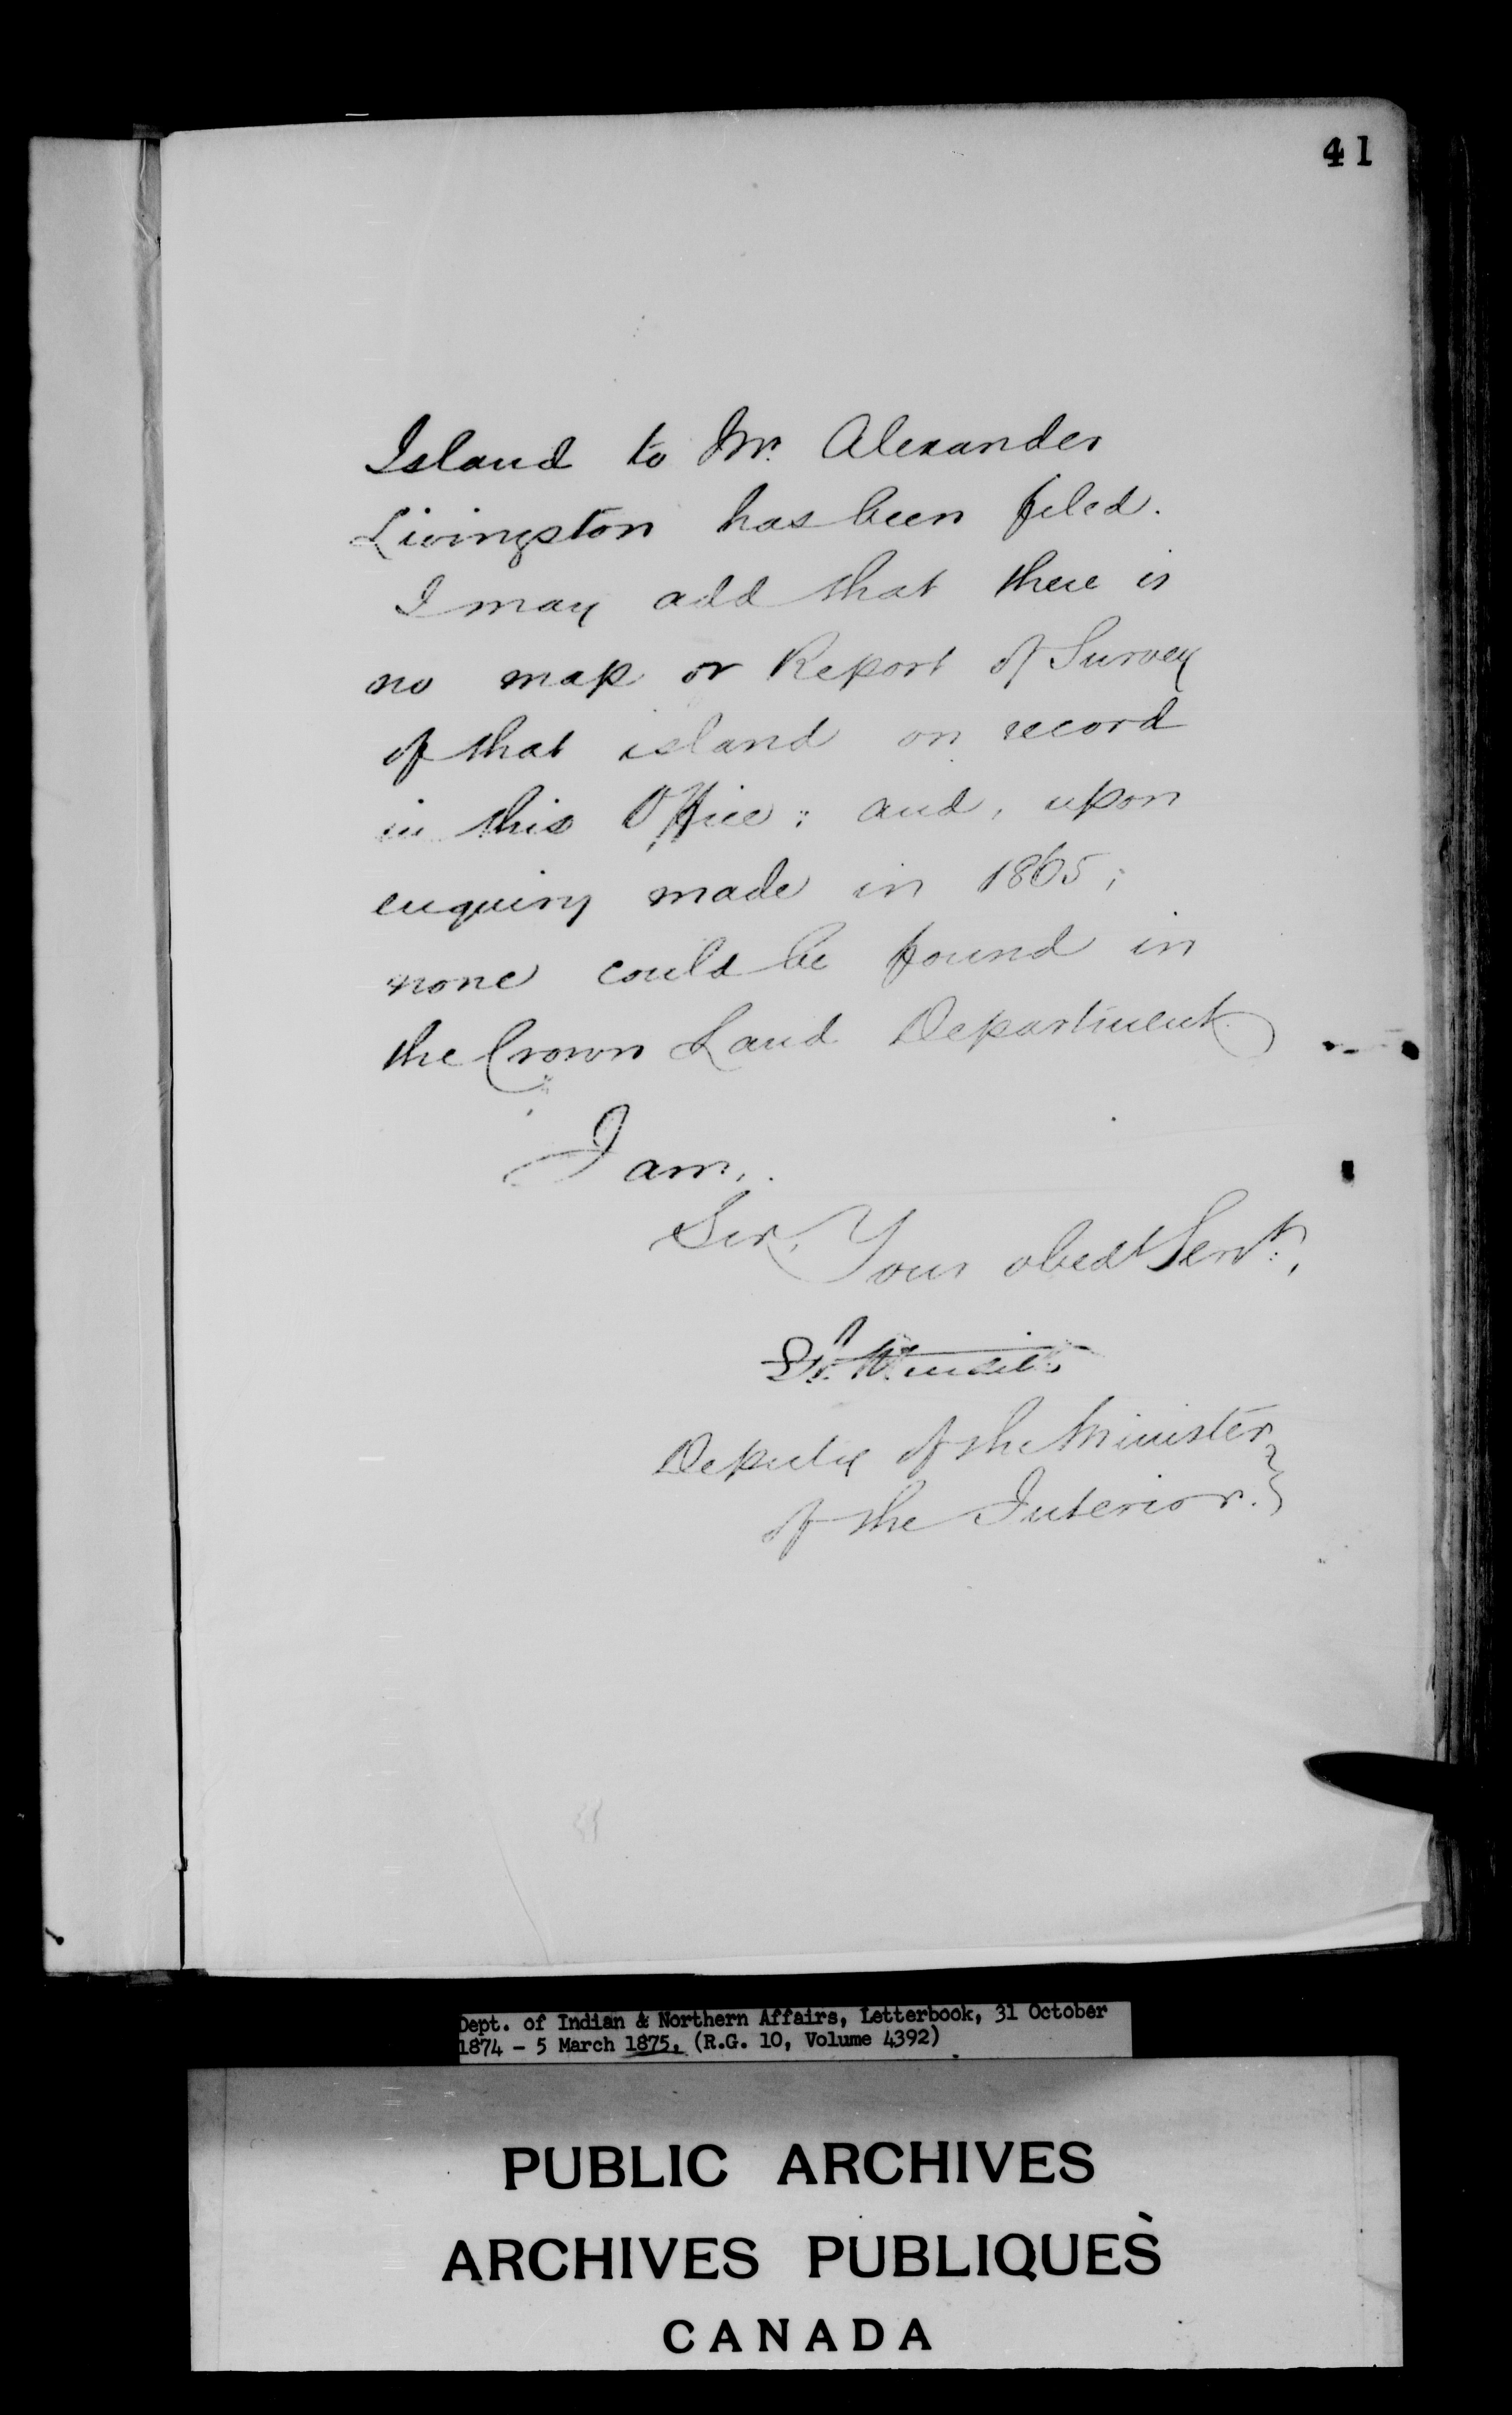 41
Island to Mr. Alexander
Livingston has been filed.
I may add that there is
no map or Report of Survey
of that island on record
in this Office; and, upon
enquiry made in 1865;
none could be found in
the Crown Land Department.
I am,
Sir,
Your obedt Servt.,
Deputy of the Minister
of the Interior.
Dept. of Indian & Northern Affairs, Letterbook, 31 October
1874 - 5 March 1875, (R.G. 10, Volume 4392)
PUBLIC ARCHIVES
ARCHIVES PUBLIQUES
CANADA